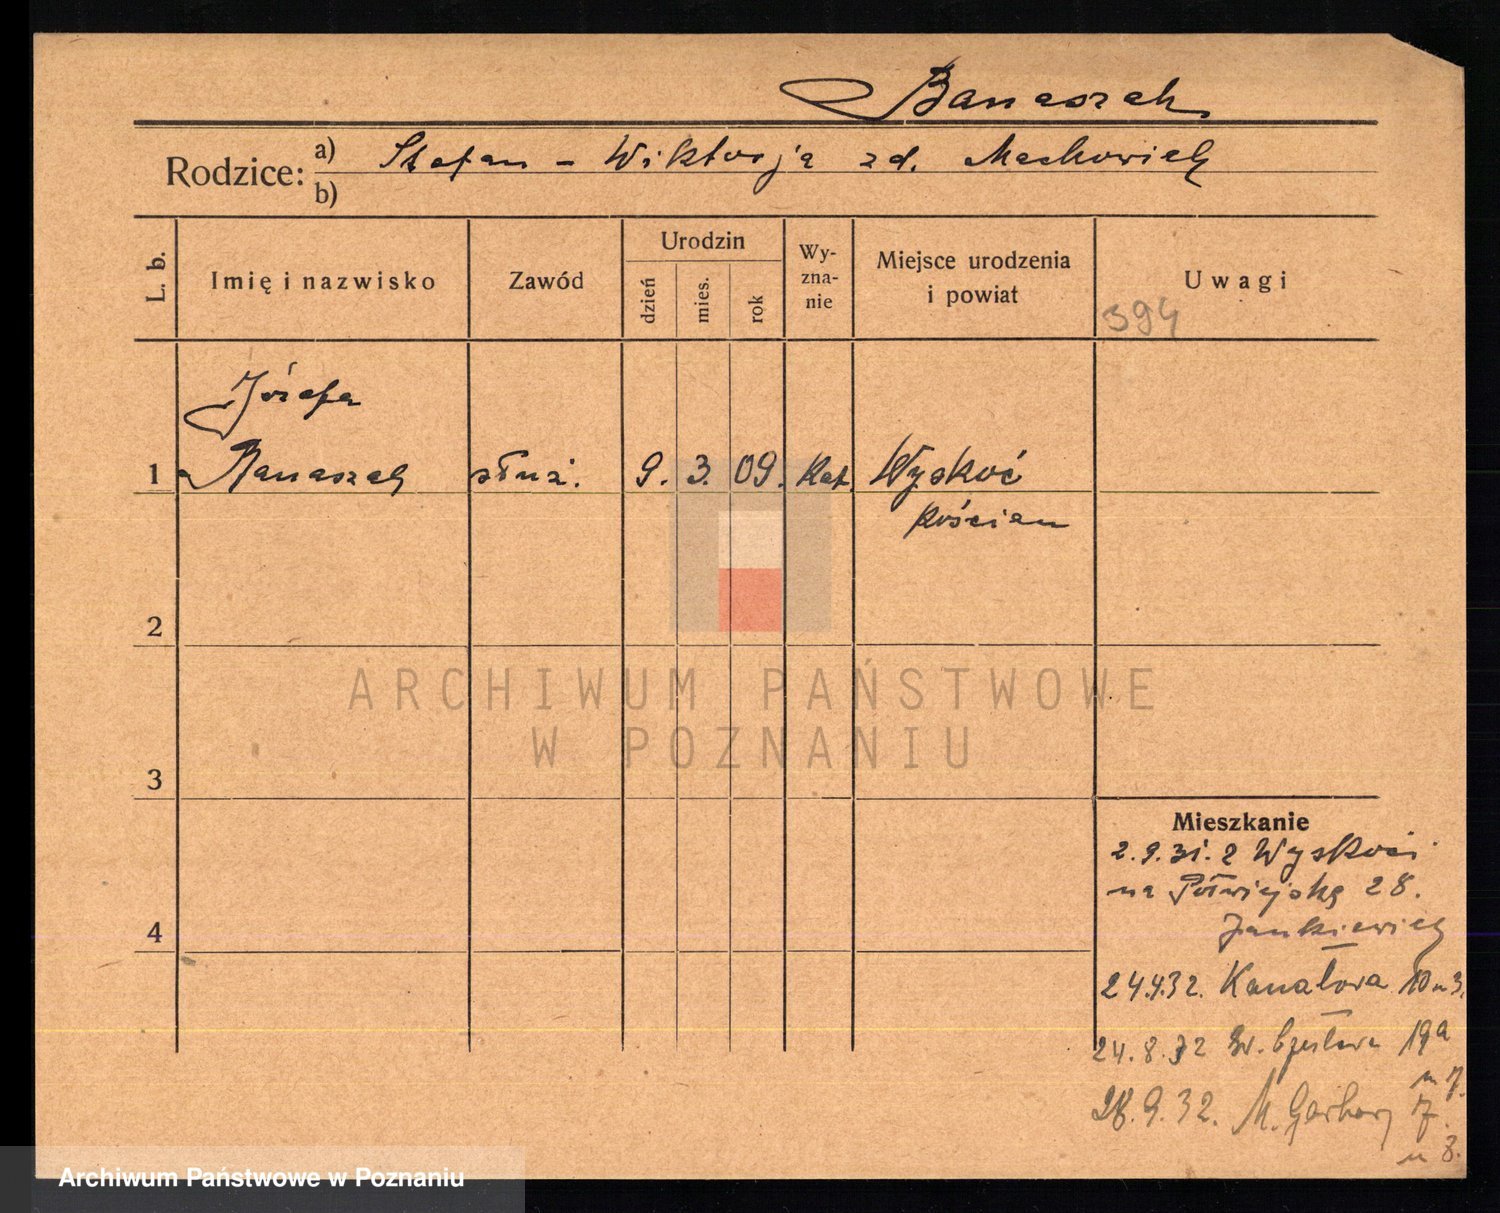 Banaszak
Rodzice: a) Stefan - Wiktorja zd.
b)
L. b.
Imię i nazwisko
Zawód
Urodzin
dzień
mies.
rok
Wy-
zna-
nie
Miejsce urodzenia
i powiat
Uwagi
394
Józefa
1 Banaszak służ. 9. 3. 09. Kat. Wyskoć
Kościan
2
3
4
Mieszkanie
2.9.31. z Wyskoci
na Półwiejską 28.
Jankiewicz
24.4.32. Kanałowa 10 m 3.
24.8.32 Św. Czesława 19a
m 7.
28.9.32. M. Garbary 7.
m 8.
ARCHIWUM PAŃSTWOWE
W POZNANIU
Archiwum Państwowe w Poznaniu